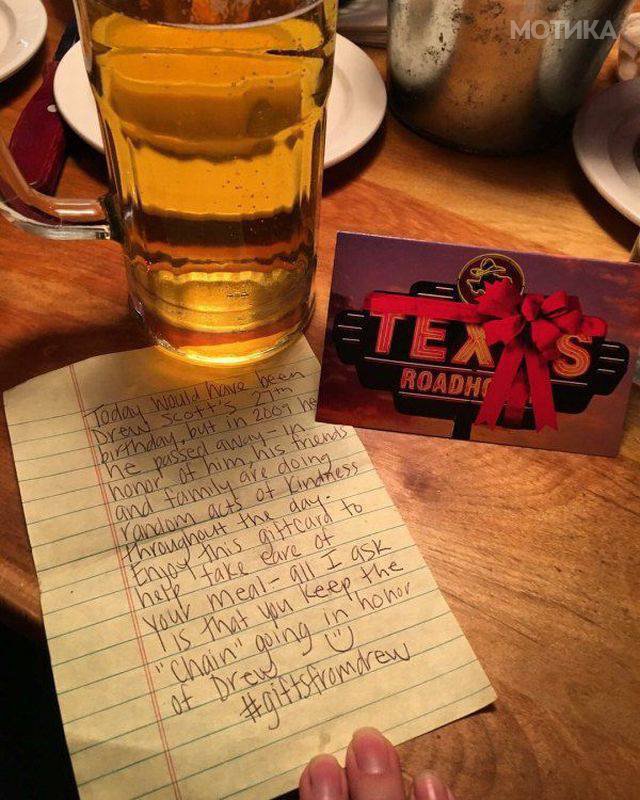 МОТИКА
TEXAS
ROADHO
Today would have been
Drew Scott's 27th
birthday, but in 2009 he
he passed away - in
honor of him, his friends
and family are doing
random acts of kindness
throughout the day.
Enjoy this giftcard to
help take care of
your meal - all I ask
is that you keep the
"chain" going in honor
of Drew :)
#giftsfromdrew